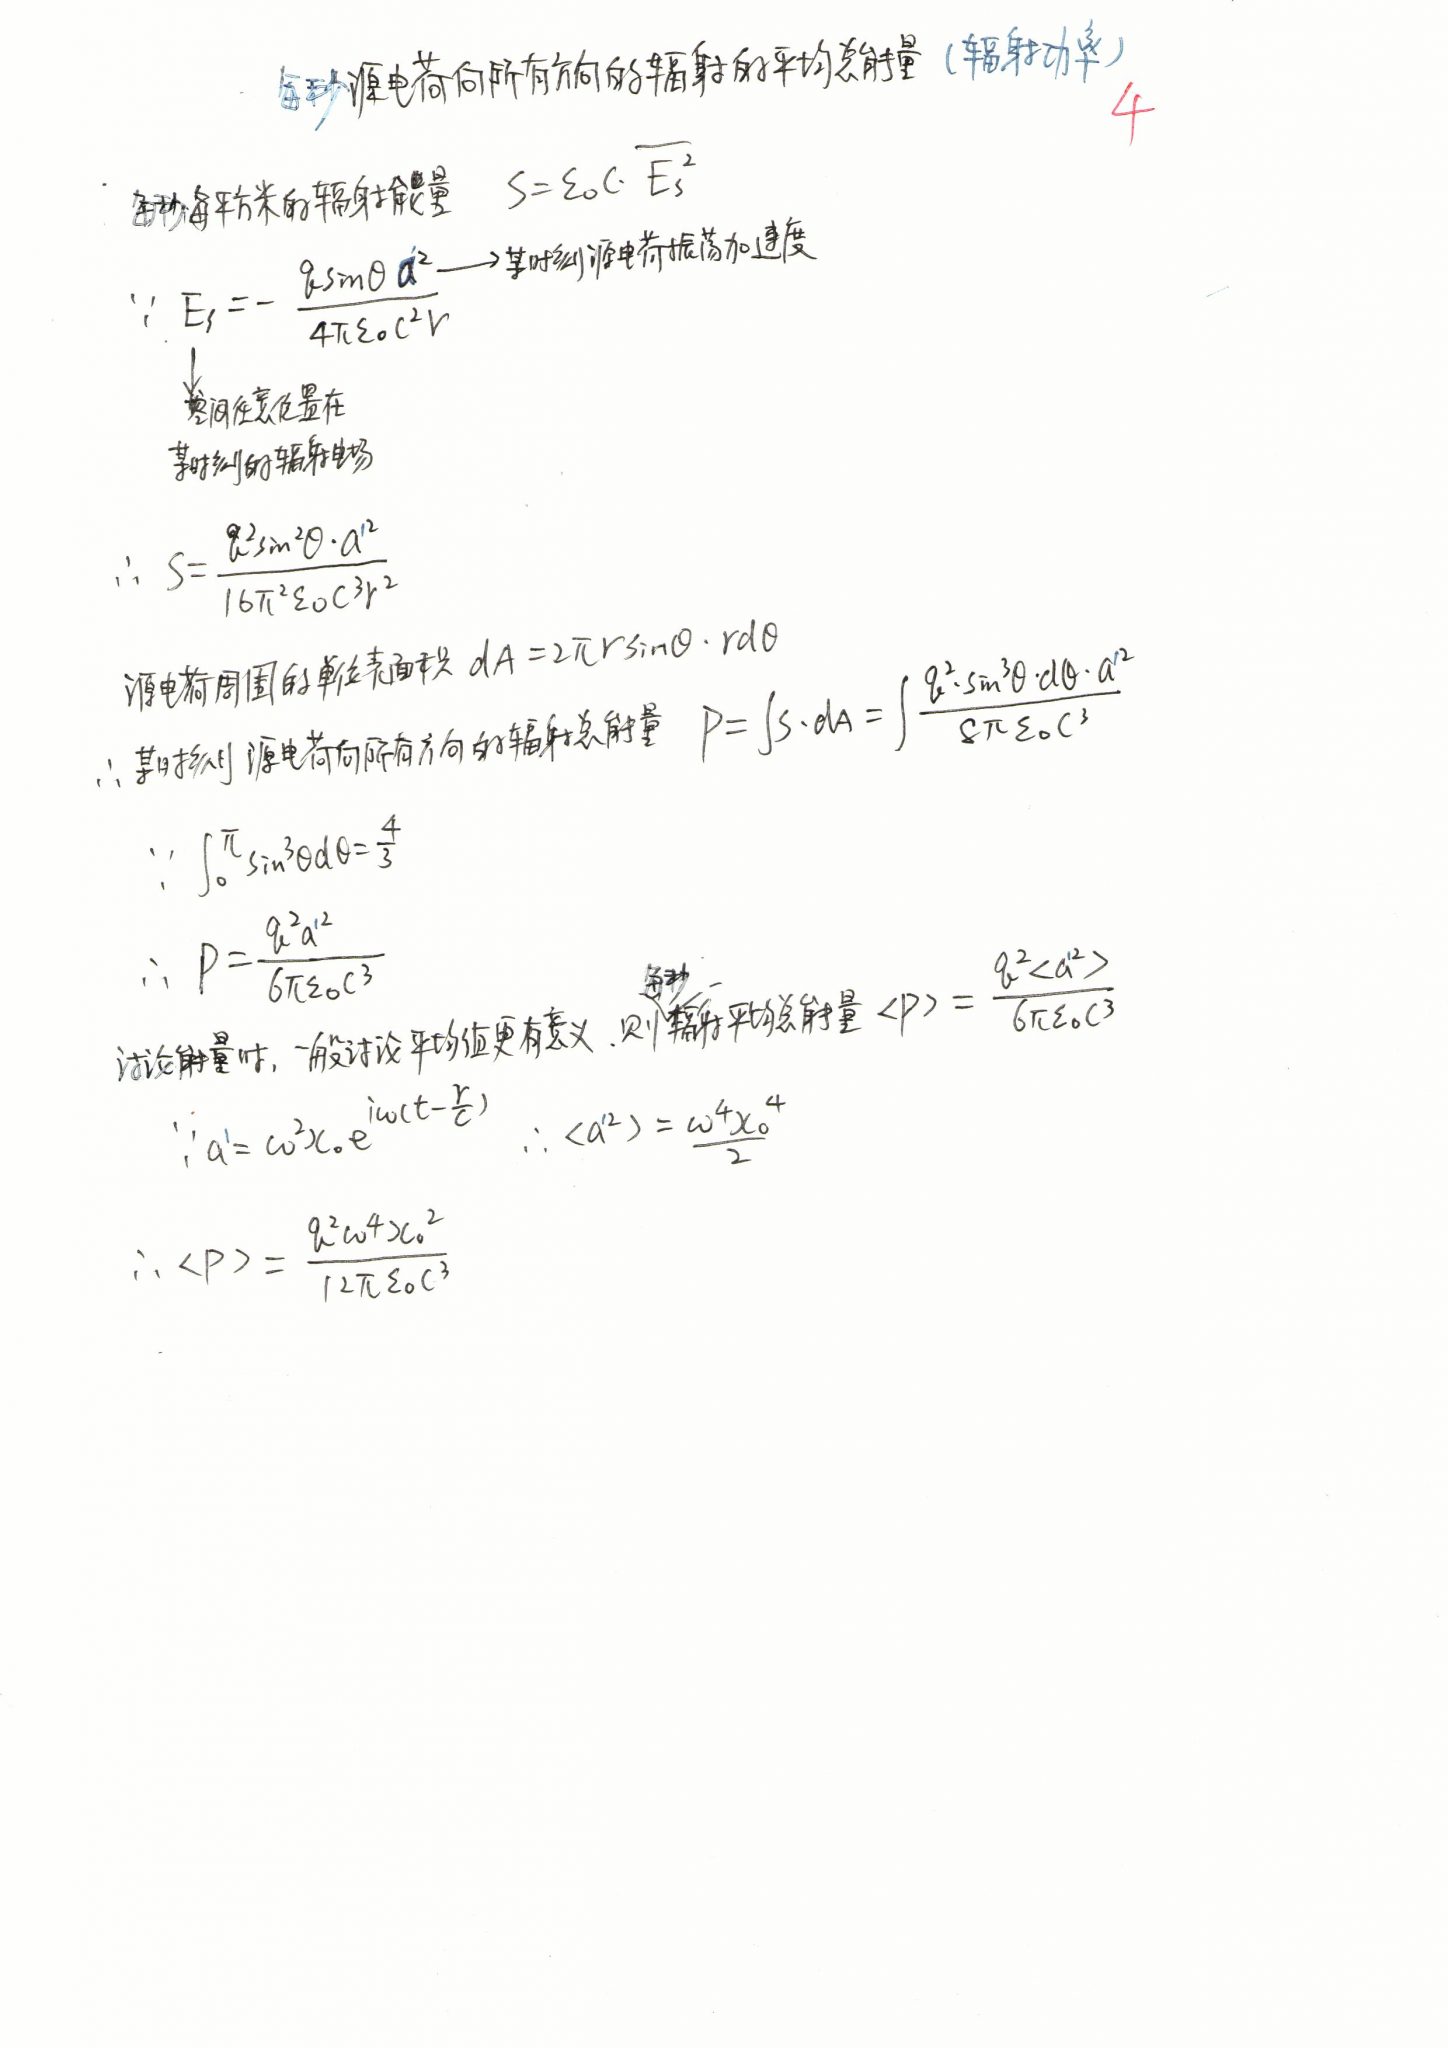 每秒源电荷向所有方向的辐射的平均总能量(辐射功率)
4
每秒每平方米的辐射能量 S=ε₀c·\overline{E_s²}
∵ E_s=-\frac{q sinθ a'²}{4πε₀c²r} →某时刻源电荷振荡加速度
↓
空间任意位置在
某时刻的辐射电场
∴ S=\frac{q²sin²θ·a'²}{16π²ε₀c³r²}
源电荷周围的单位表面积 dA=2πr sinθ·rdθ
∴ 某时刻源电荷向所有方向的辐射总能量 P=∫S·dA=∫\frac{q²·sin³θ·dθ·a'²}{8πε₀c³}
∵ ∫₀^π sin³θdθ=\frac{4}{3}
∴ P=\frac{q²a'²}{6πε₀c³}
讨论能量时,一般讨论平均值更有意义.则每秒辐射平均总能量<P>=\frac{q²<a'²>}{6πε₀c³}
∵ a'=ω²x₀e^{iω(t-\frac{r}{c})} ∴ <a'²>=\frac{ω⁴x₀⁴}{2}
∴ <P>=\frac{q²ω⁴x₀²}{12πε₀c³}